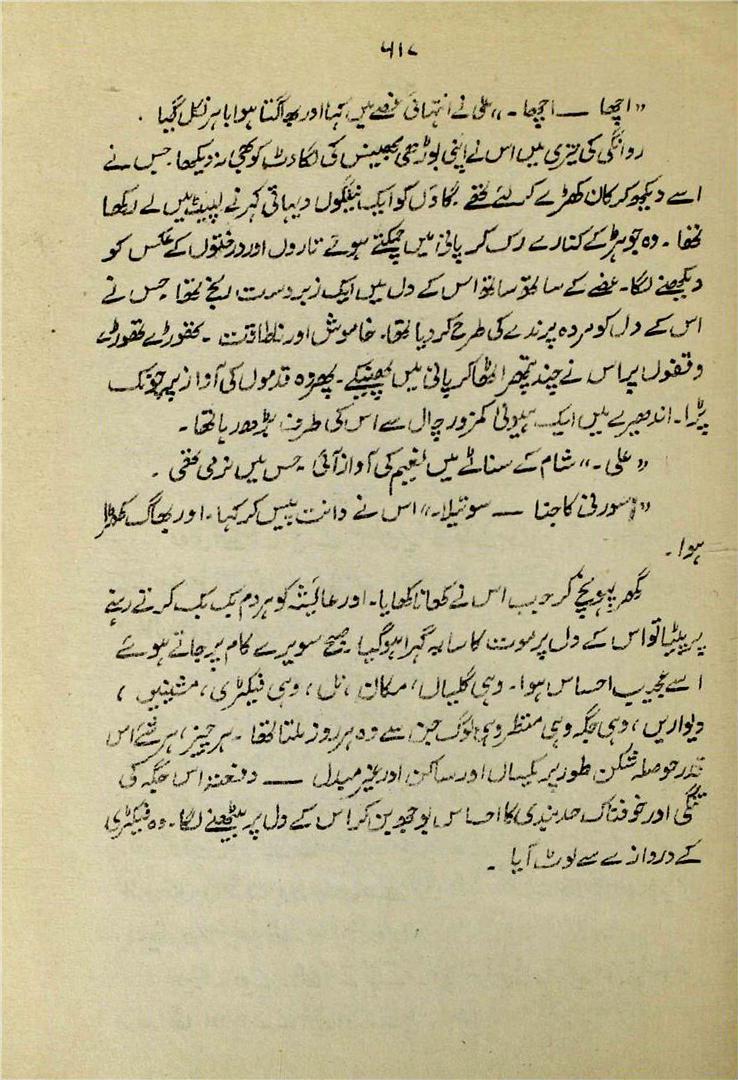 ۵۱۷
"اچھا — اچھا۔" علی نے انتہائی غصے میں کہا اور بھاگتا ہوا باہر نکل گیا۔
روانگی کی تیزی میں اس نے اپنی بوڑھی بھینس کی لگاوٹ کو بھی نہ دیکھا جس نے
اسے دیکھ کر کان کھڑے کر لئے تھے۔ گاؤں کو ایک نیلگوں دیہاتی کہر نے لپیٹ میں لے رکھا
تھا۔ وہ جوہڑ کے کنارے رک کر پانی میں چمکتے ہوئے تاروں اور درختوں کے عکس کو
دیکھنے لگا۔ غصے کے ساتھ ساتھ اس کے دل میں ایک زبردست رنج تھا جس نے
اس کے دل کو مردہ پرندے کی طرح کر دیا تھا۔ خاموش اور ناطاقت۔ تھوڑے تھوڑے
وقفوں پر اس نے چند پتھر اٹھا کر پانی میں پھینکے۔ پھر وہ قدموں کی آواز پر چونک
پڑا۔ اندھیرے میں ایک ہیولیٰ کمزور چال سے اس کی طرف بڑھ رہا تھا۔
"علی۔" شام کے سناٹے میں نعیم کی آواز آئی جس میں نرمی تھی۔
"سورنی کا جنا — سوتیلا۔" اس نے دانت پیس کر کہا۔ اور بھاگ کھڑا
ہوا۔
گھر پہونچ کر جب اس نے کھانا کھایا۔ اور عائشہ کو ہر دم بک بک کرتے رہنے
پر پیٹا تو اس کے دل پر موت کا سایہ گہرا ہو گیا۔ صبح سویرے کام پر جاتے ہوئے
اسے عجیب احساس ہوا۔ وہی گلیاں، مکان، نل، وہی فیکٹری، مشینیں،
دیواریں، وہی جگہ وہی منظر وہی لوگ جن سے وہ ہر روز ملتا تھا۔ ہر چیز، ہر شے اس
قدر حوصلہ شکن طور پر یکساں اور ساکن اور غیر مبدل — دفعتہً اس جگہ کی
تنگی اور خوفناک حد بندی کا احساس بوجھ بن کر اس کے دل پر بیٹھنے لگا۔ وہ فیکٹری
کے دروازے سے لوٹ آیا۔